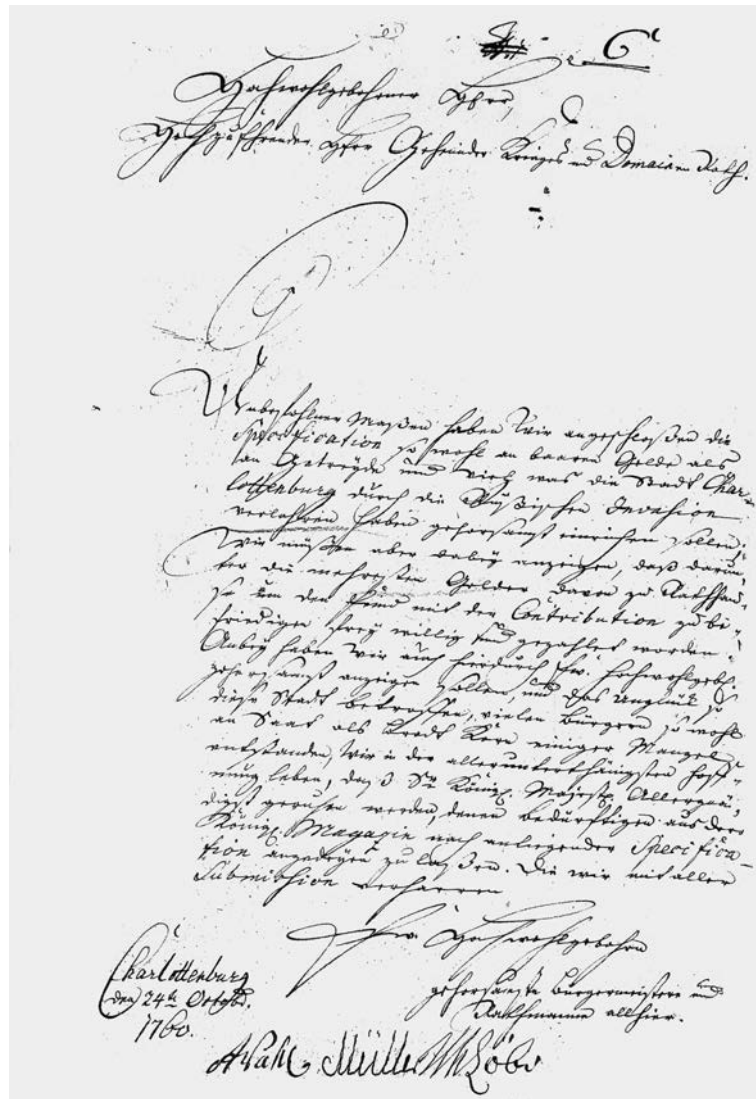 Hochwohlgebohrner Herr,
Hochzuehrender Herr Geheimder Krieges und Domainen Rath.
Anbefohlner Maßen haben Wir angeschloßen die
Specification so wohl an baaren Gelde als
an Getreyde und Vieh was die Stadt Char-
lottenburg durch die Rußischen Invasion
verlohren haben gehorsamst einreichen sollen;
Wir müßen aber dabey anzeigen, daß darun-
ter die mehresten Gelder davon zu Rathhauß
so um den Feind mit der Contribution zu be-
friedigen frey willig sind gezahlet worden.
Anbey haben Wir auch hierdurch Ew. Hochwohlgeb.
gehorsamst anzeigen sollen, und das Unglück so
diese Stadt betroffen, vielen Bürgern so wohl
an Saat als Brodt Korn einiger Mangel
entstanden, Wir in der allerunterthänigsten Hoff-
nung leben, daß Sr. Königl. Majest. Allergnä-
digst geruhen werden, denen bedürftigen aus dero
Königl. Magazin nach anliegender Specifica-
tion zu laßen. Die wir mit aller
Submission verharren
Ew. Hochwohlgebohrn
Charlottenburg
den 24th Octobr.
1760.
gehorsamste Bürgermeistere und
Rathmanne allhier.
Müller